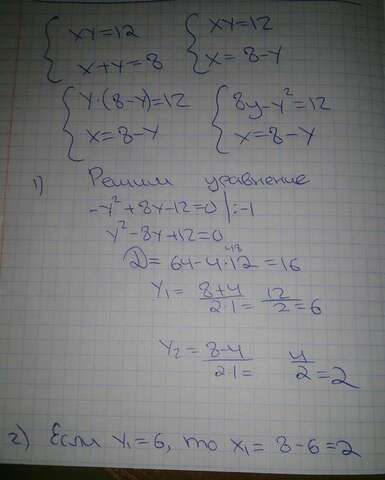 { xy=12 { xy=12
{ x+y=8 { x=8-y
{ y·(8-y)=12 { 8y-y²=12
{ x=8-y { x=8-y
1) Решим уравнение
-y²+8y-12=0 |:-1
y²-8y+12=0
48
D=64-4·12=16
y₁= 8+4/2·1= 12/2=6
y₂= 8-4/2·1= 4/2=2
2) Если y₁=6, то x₁=8-6=2